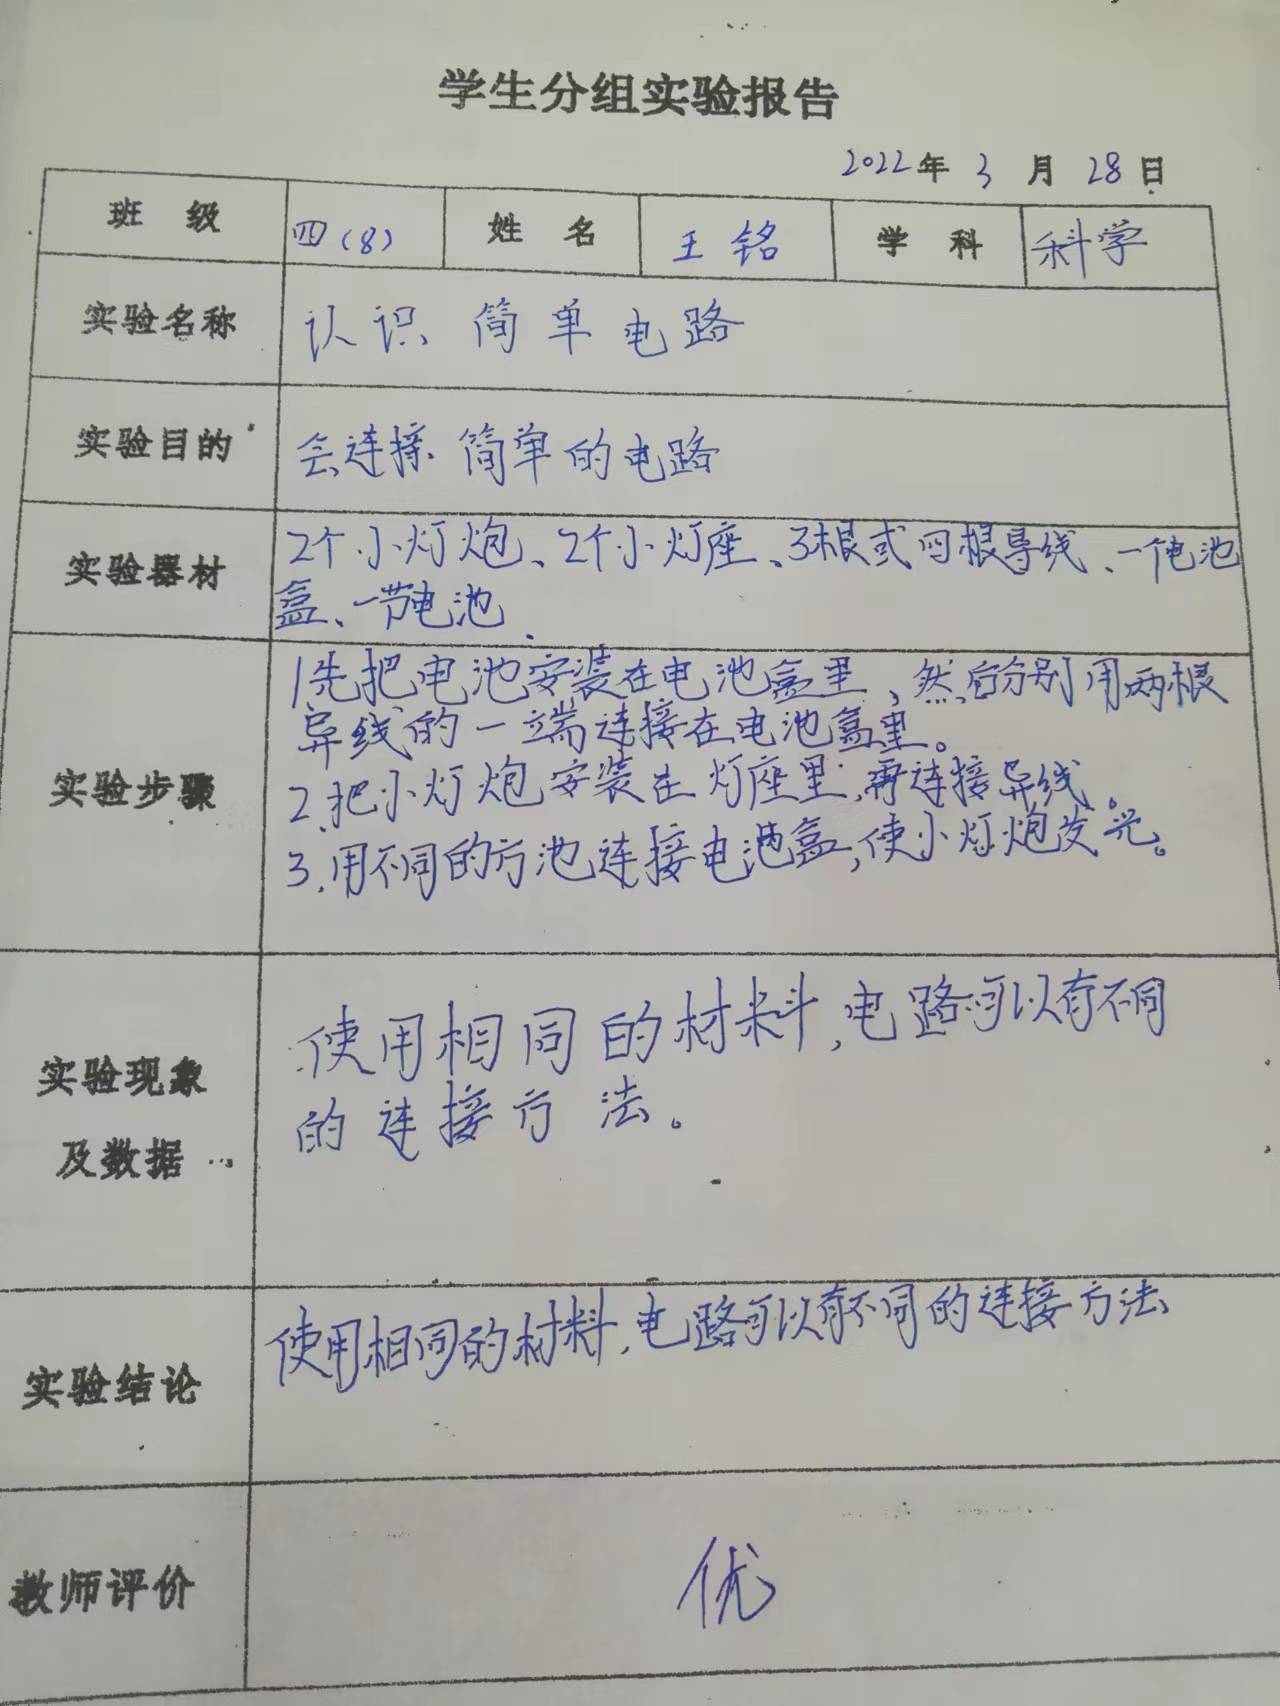 学生分组实验报告
2022年 3 月 28 日
班 级 四(8) 姓 名 王铭 学 科 科学
实验名称 认识简单电路
实验目的 会连接简单的电路
实验器材 2个小灯炮、2个小灯座、3根或四根导线、一个电池
盒、一节电池
实验步骤
1先把电池安装在电池盒里,然后分别用两根
导线的一端连接在电池盒里。
2.把小灯炮安装在灯座里,再连接导线。
3.用不同的方池连接电池盒,使小灯炮发光。
实验现象
及数据
使用相同的材料,电路可以有不同
的连接方法。
实验结论 使用相同的材料,电路可以有不同的连接方法
教师评价 优